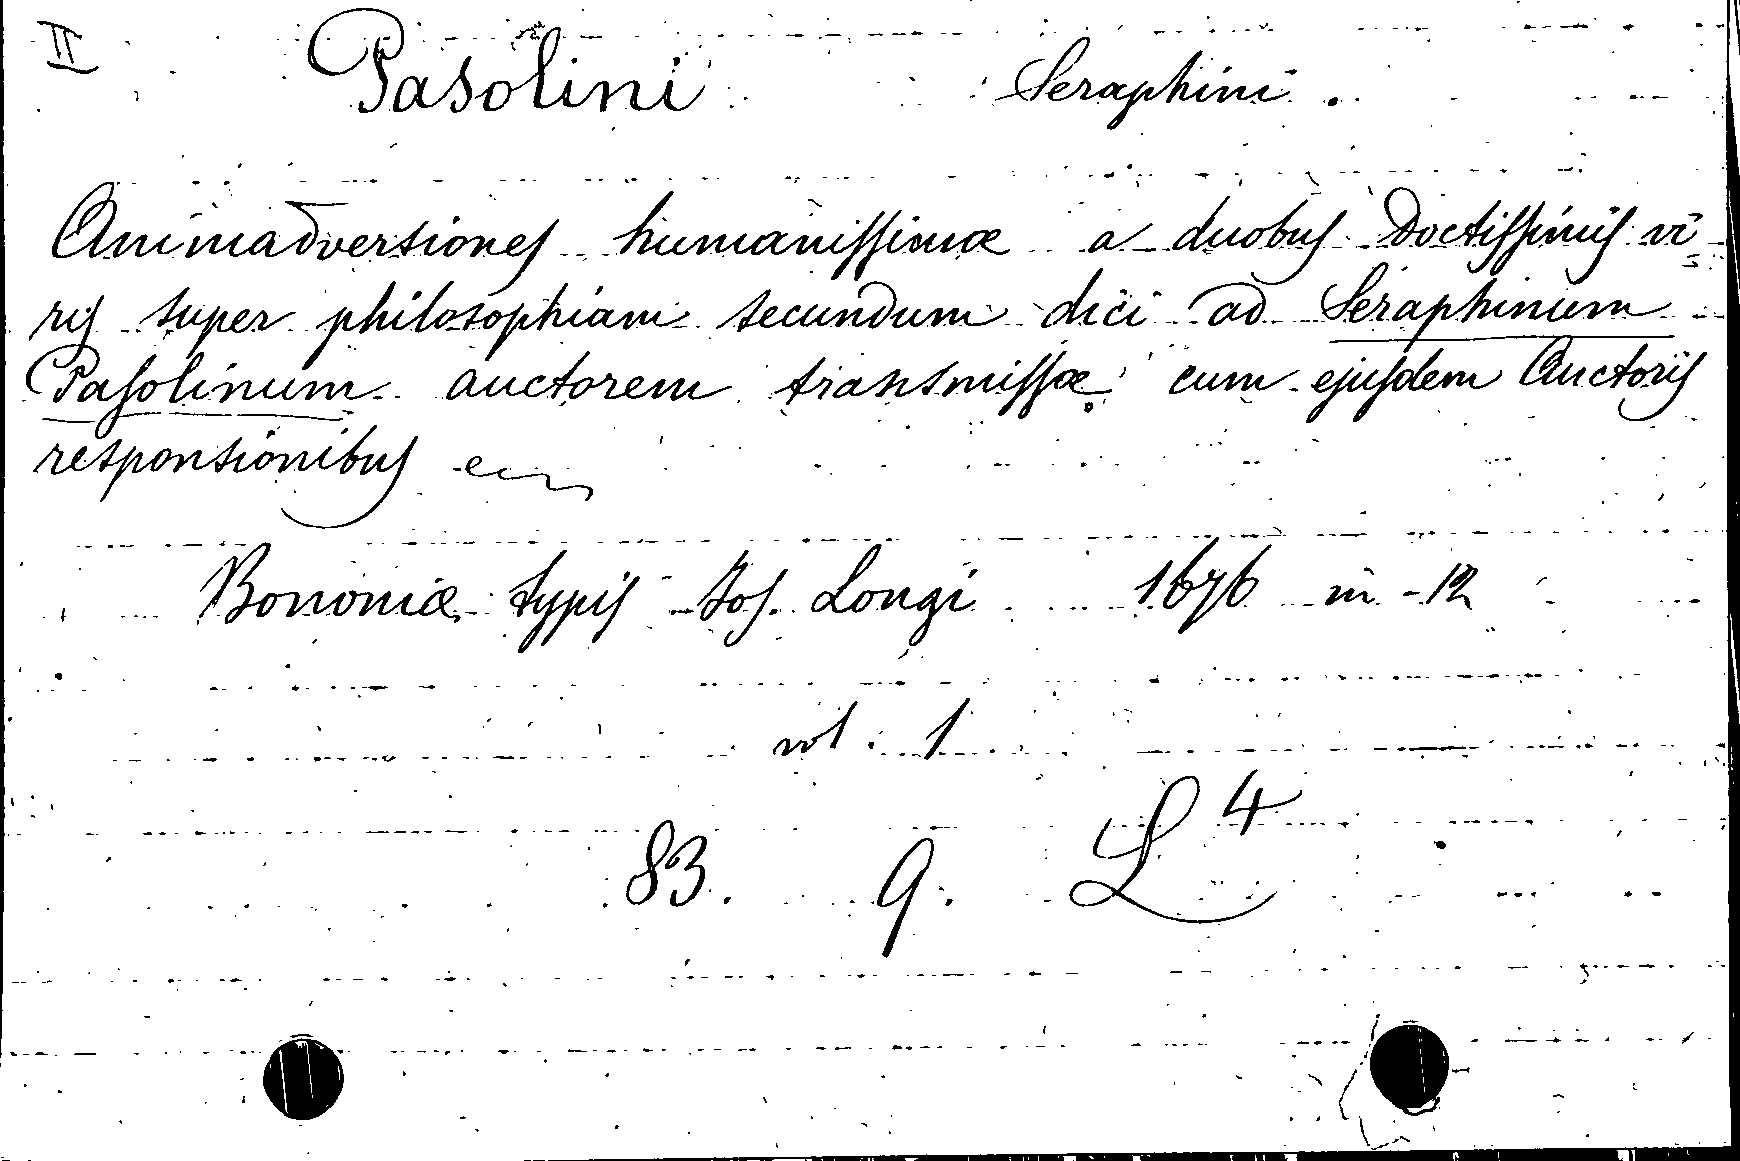 II Pasolini Seraphini.
Animadversiones humanissimæ a duobus Doctissimis vi
ris super philosophiam secundum dici ad Seraphinum
Pasolinum auctorem transmissæ cum ejusdem Auctoris
responsionibus
Bononiæ typis Jos. Longi 1676 in-12
vol. 1
83. 9. L⁴